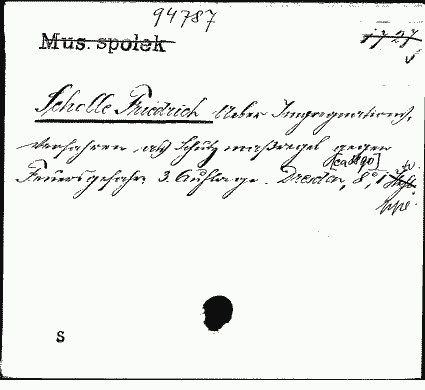 94787
Mus. spolek
Scholle Friedrich Ueber Impregnations,
verfahren als Schutzmaßregel gegen
[ca 1890]
Feuersgefahr. 3. Auflage. Dresden, 8°, 1
s